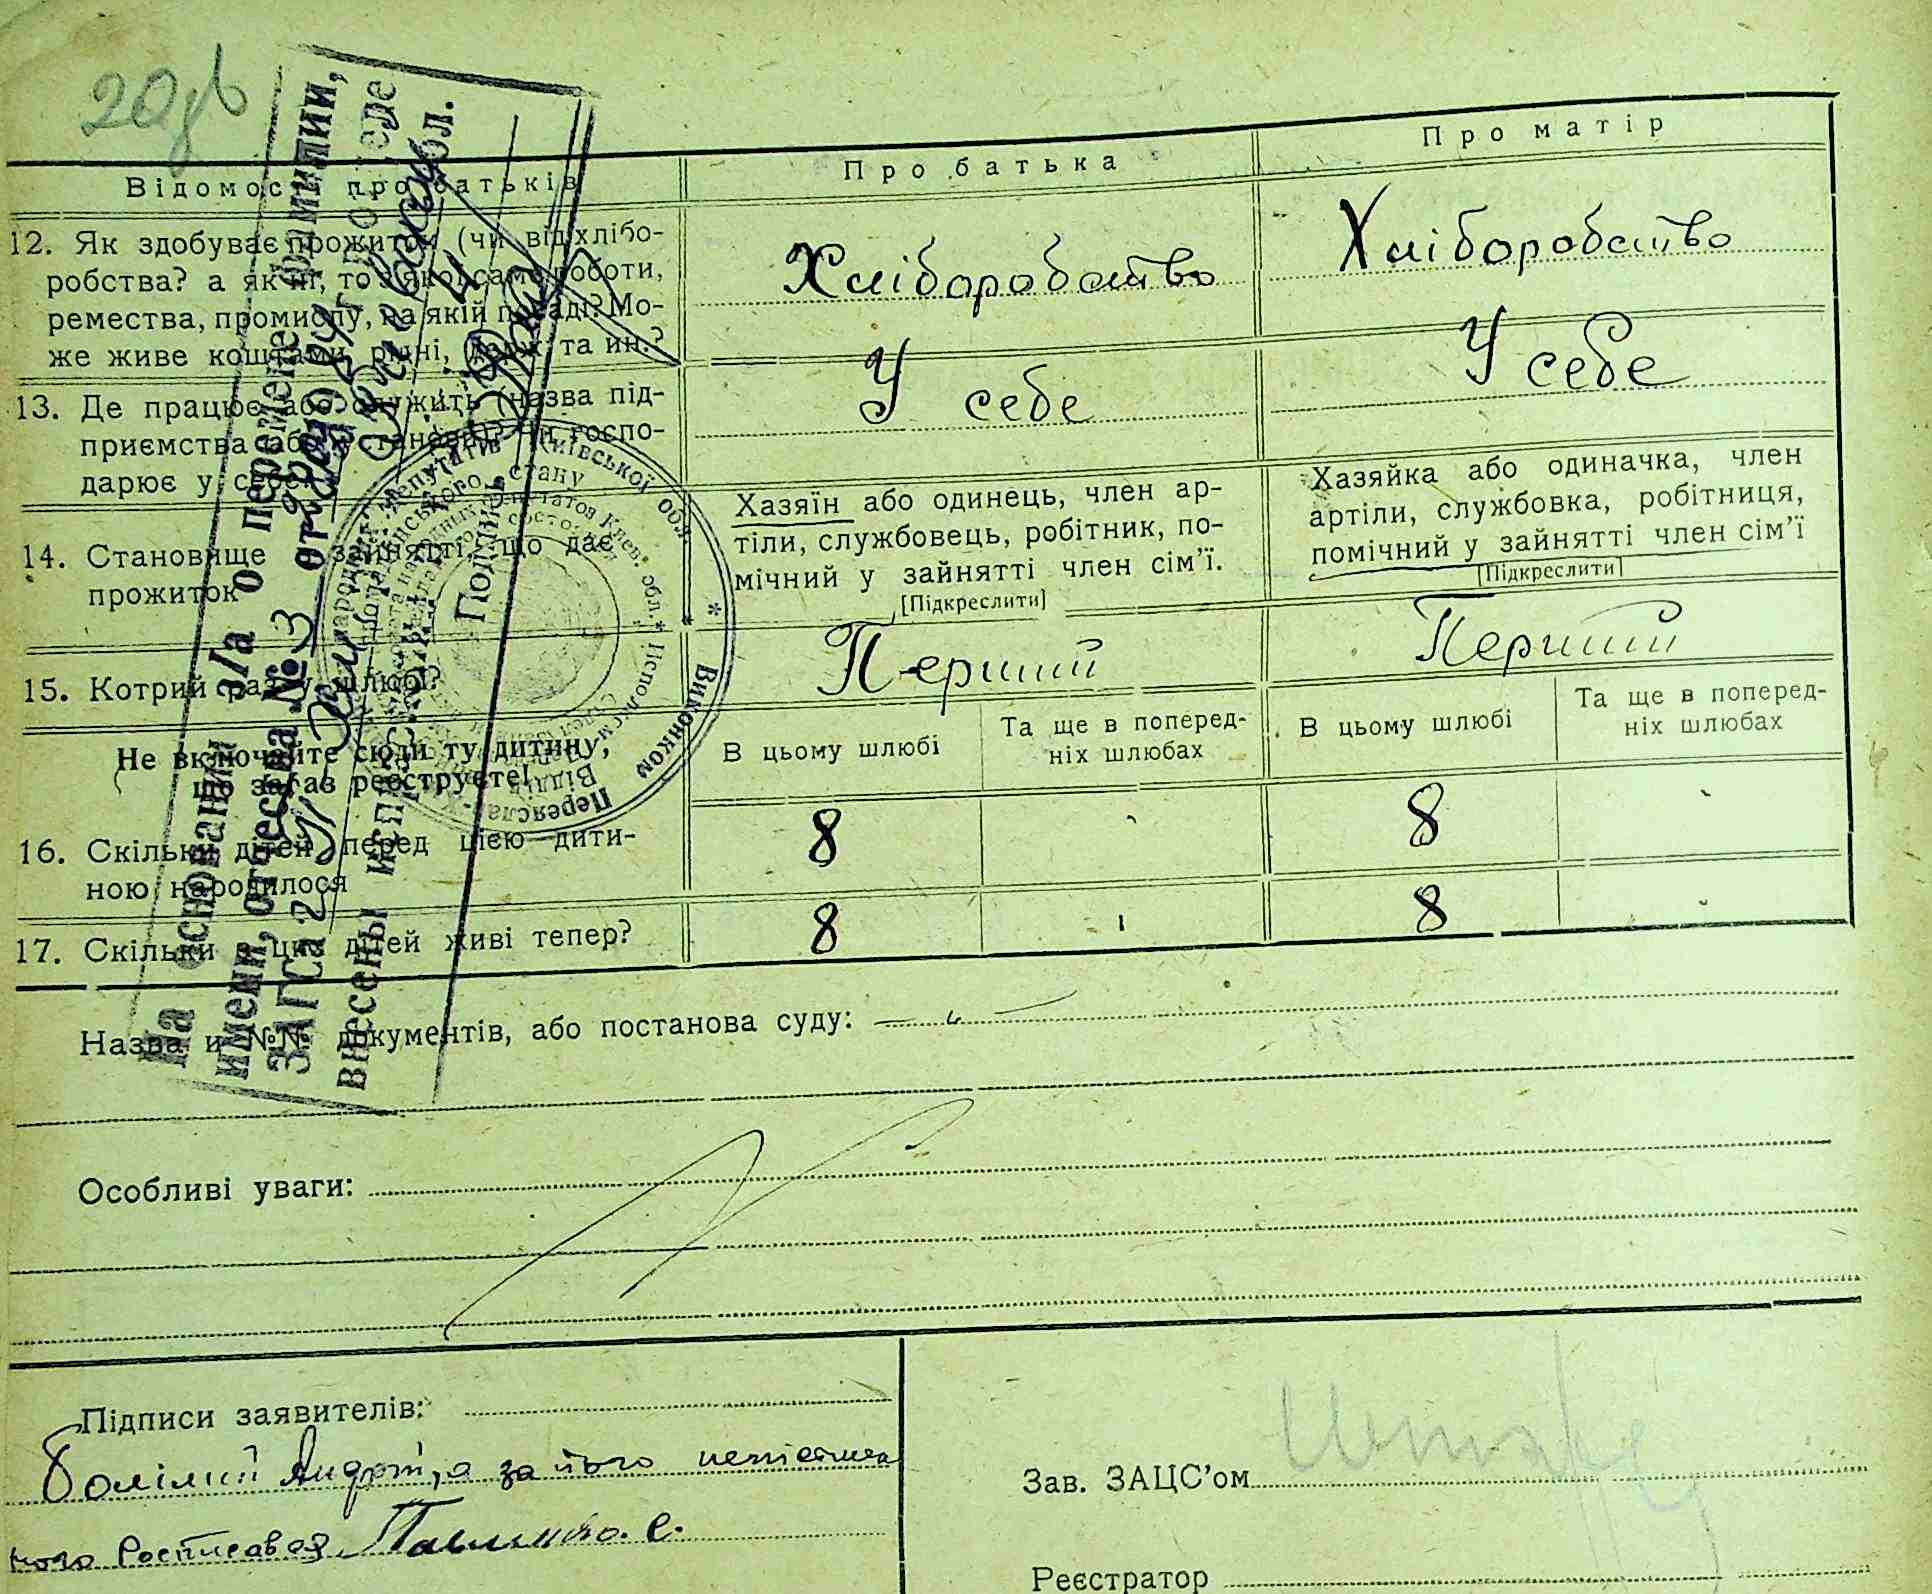 Відомості про батьків
Про батька
Про матір
12. Як здобуває прожиток (чи від хлібо-
робства? а як ні, то з якої саме роботи,
ремества, промислу, на якій посаді? Мо-
же живе коштами рідні, держ. та ин.?
Хліборобство
Хліборобство
13. Де працює або служить (назва під-
приємства або установи)? Чи госпо-
дарює у себе?
У себе
У себе
14. Становище в зайнятті, що дає
прожиток
Хазяїн або одинець, член ар-
тіли, службовець, робітник, по-
мічний у зайнятті член сім'ї.
[Підкреслити]
Хазяйка або одиначка, член
артіли, службовка, робітниця,
помічний у зайнятті член сім'ї
[Підкреслити]
15. Котрий раз у шлюбі?
Перший
Перший
Не включайте сюди ту дитину,
що зараз реєструєте!
В цьому шлюбі
Та ще в поперед-
ніх шлюбах
В цьому шлюбі
Та ще в поперед-
ніх шлюбах
16. Скільки дітей перед цією дити-
ною народилося
8
8
17. Скільки з цих дітей живі тепер?
8
8
Назва и №№ документів, або постанова суду:
Особливі уваги:
Підписи заявителів:
Андрій, а за його неписьмен
ного Росписався Павленко. С.
Зав. ЗАЦС'ом
Реєстратор
На основании з/а о перемене фамилии,
имени, отчества № 3
ЗАГСа
внесены испр